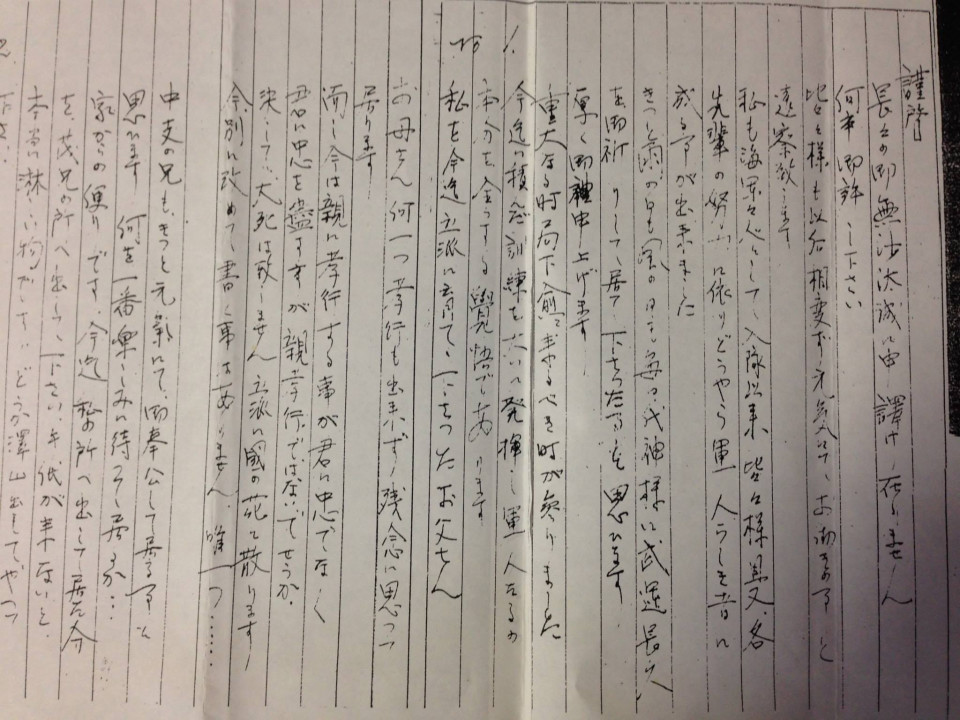 謹啓
長々の御無沙汰誠に申し譯け在りません
何卒御許し下さい
皆々様も以后相変らず元気にて、お働きの事と
遠察致します
私も海軍々人として入隊以来、皆々様、又各
先輩の努力に依りどうやら軍人らしき者に
成る事が出来ました
きっと雨の日も風の日も毎日氏神様に武運長久
を御祈りして居て下さった事と思ひます
厚く御禮申し上げます
重大なる時局下愈々来るべき時が参りました
今迄の積んだ訓練を大いに発揮し軍人たるの
本分を全うする覺悟であります
私を今迄立派に育てて下さったお父さん
お母さん何一つ孝行も出来ず残念に思って
居ります
而し今は親に孝行する事が君に忠でなく
君に忠を盡すすが親孝行ではないでせうか
決して、犬死は致しません立派に國の花と散ります
今、別に改めて、書く事はありません、唯一つ……
中支の兄も、きっと元氣にて、御奉公して居る事と
思ひます 何を一番楽しみに待って居るか…
家からの便りです、今迄 私の所へ出して居た分
を、茂兄の所へ出して下さい、手紙が来ないと、
本当に淋しい物です、どうか澤山出してやって
下さい